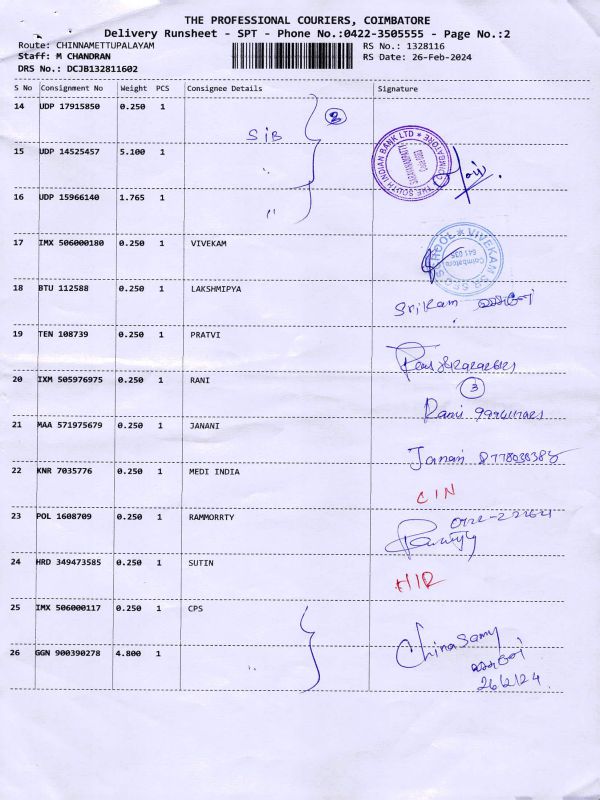 THE PROFESSIONAL COURIERS, COIMBATORE
Delivery Runsheet - SPT - Phone No.:0422-3505555 - Page No.:2
Route: CHINNAMETTUPALAYAM RS No.: 1328116
Staff: M CHANDRAN RS Date: 26-Feb-2024
DRS No.: DCJB132811602
S No Consignment No Weight PCS Consignee Details Signature
14 UDP 17915850 0.250 1
SIB
15 UDP 14525457 5.100 1
THE SOUTH INDIAN BANK LTD * COIMBATORE
16 UDP 15966140 1.765 1
17 IMX 506000180 0.250 1 VIVEKAM
VIVEKAM SR SEC SCHOOL
Coimbatore
641 035
18 BTU 112588 0.250 1 LAKSHMIPYA
Srikam
19 TEN 108739 0.250 1 PRATVI
20 IXM 505976975 0.250 1 RANI
3
Rani
21 MAA 571975679 0.250 1 JANANI
Janani
22 KNR 7035776 0.250 1 MEDI INDIA
CIN
23 POL 1608709 0.250 1 RAMMORRTY
24 HRD 349473585 0.250 1 SUTIN
HIR
25 IMX 506000117 0.250 1 CPS
26 GGN 900390278 4.800 1
Chinasamy
26/2/24